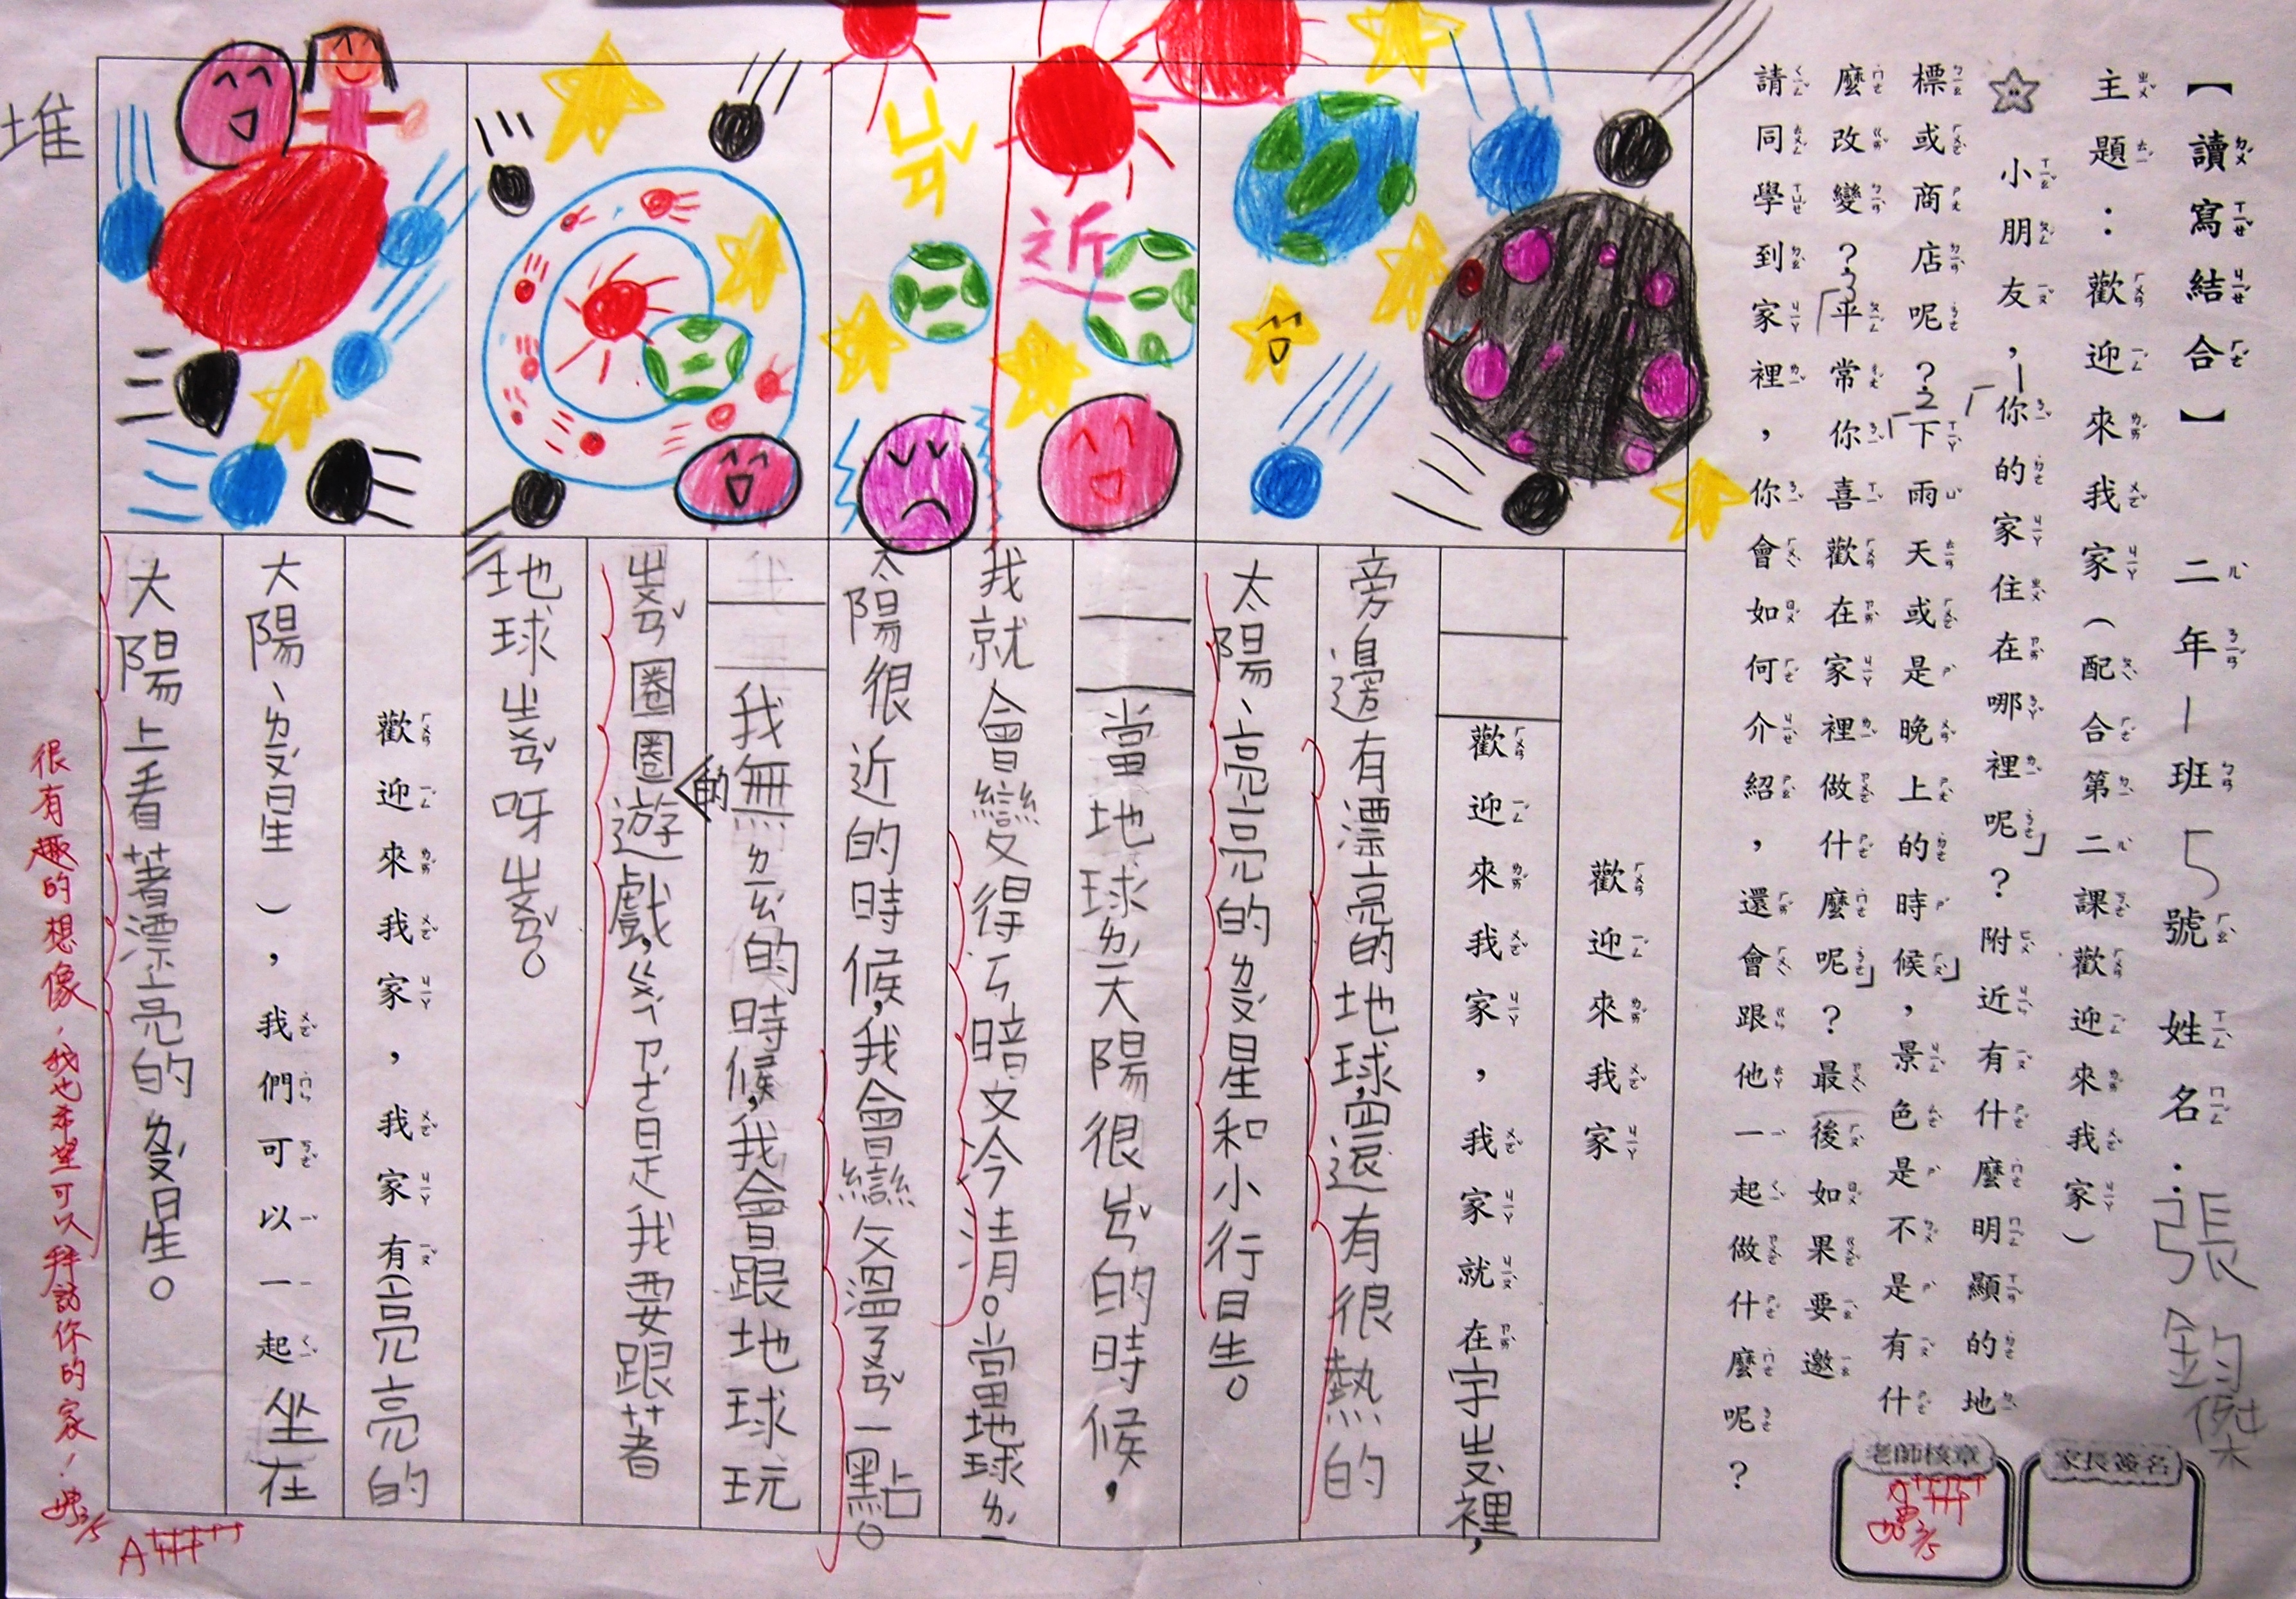 【讀寫結合】 二年1班5號 姓名:張鈞傑
主題:歡迎來我家(配合第二課歡迎來我家)
小朋友,1「你的家住在哪裡呢」?附近有什麼明顯的地
標或商店呢?2「下雨天或是晚上的時候」,景色是不是有什
麼改變?3「平常你喜歡在家裡做什麼呢」?最後如果要邀
請同學到家裡,你會如何介紹,還會跟他一起做什麼呢?
老師核章
家長簽名
歡迎來我家
歡迎來我家,我家就在宇ㄓㄡˋ裡,
旁邊有漂亮的地球,還有很熱的
太陽、亮亮的ㄌㄧㄡˊ星和小行星。
當地球ㄌㄧˊ太陽很ㄐㄧㄣˋ的時候,
我就會變得ㄧㄡˋ暗ㄧㄡˋ冷清。當地球ㄌㄧˊ
太陽很近的時候,我會變ㄉㄜˊ溫ㄋㄨㄢˇ一點。
我無ㄌㄧㄠˊ的時候,我會跟地球玩
ㄓㄨㄢˇ圈圈的遊戲,
是我要跟著
地球ㄓㄨㄢˇ呀ㄓㄨㄢˇ。
歡迎來我家,我家有(亮亮的
太陽、ㄌㄧㄡˊ星),我們可以一起坐在
太陽上看著漂亮的ㄌㄧㄡˊ星。
近
堆
很有趣的想像,我也希望可以拜訪你的家!
3/5
A+++++